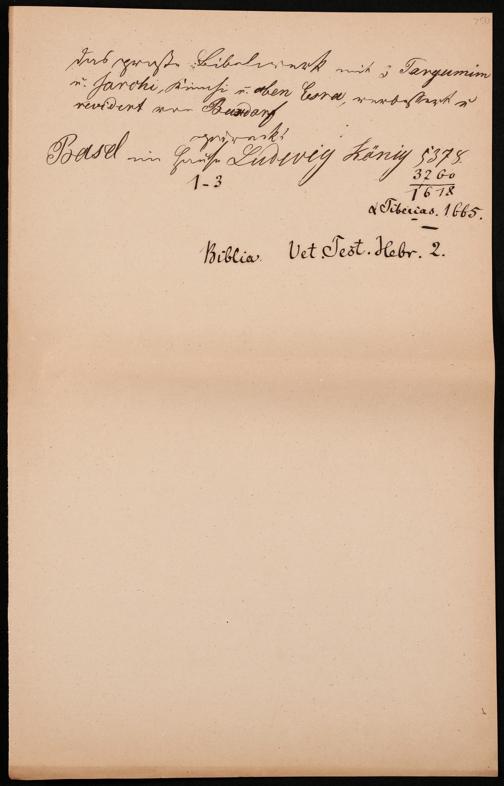 750
das große Bibelwerk mit 3 Targumim
u. Jarchi, Kimchi u. Aben Esra, verbessert u
revidirt von Buxdorf
gedruckt
Basel im Hause Ludwig König 5378.
1-3
3260
1618
& Tiberias. 1665.
Biblia Vet. Test. Hebr. 2.